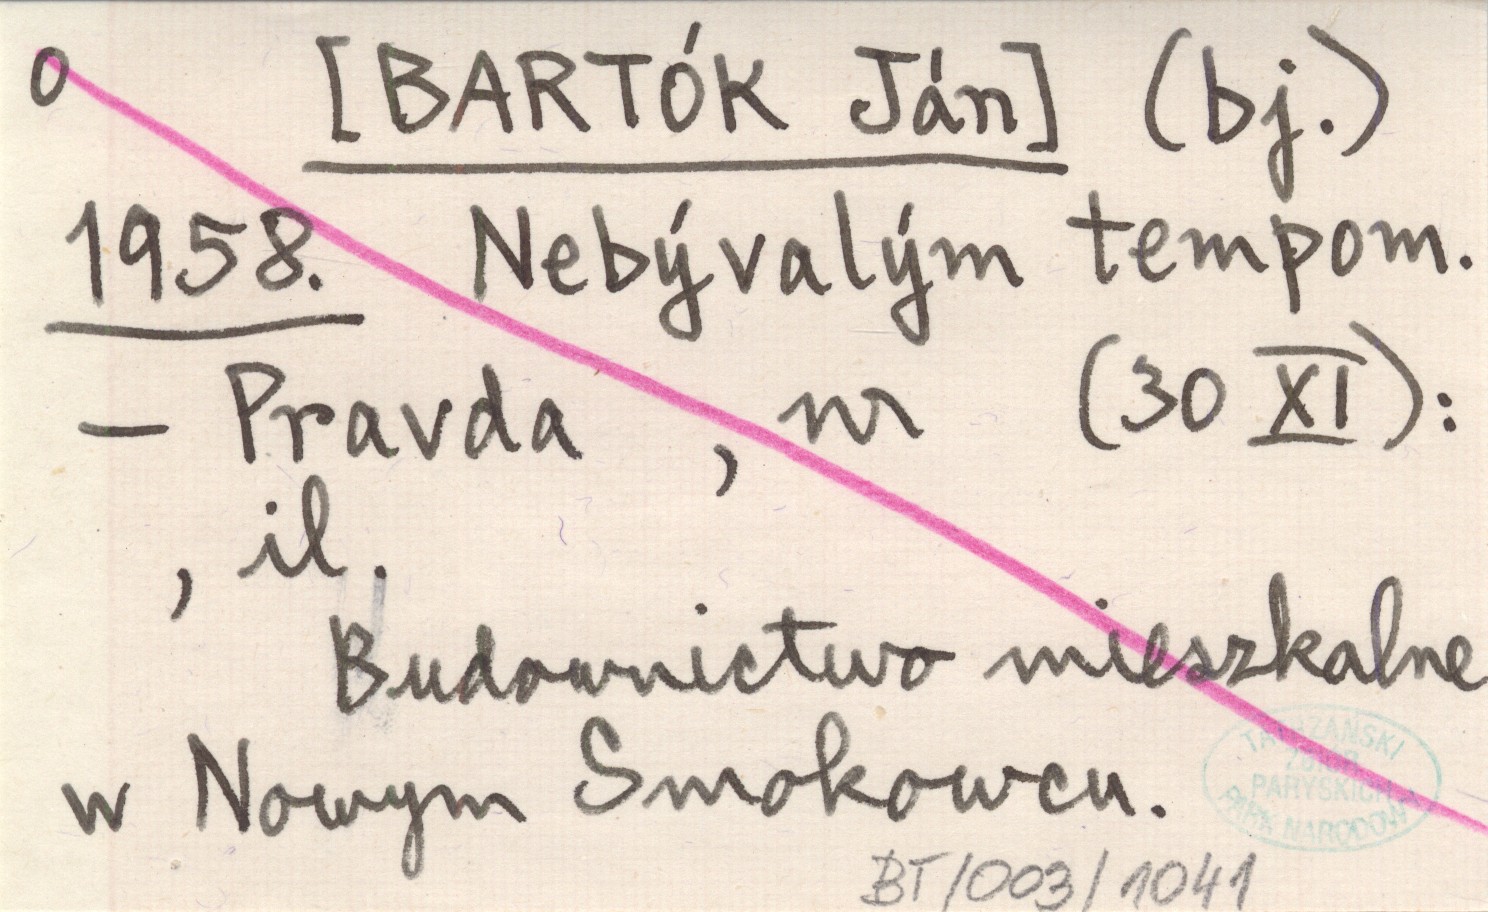 o [BARTÓK Ján] (bj.)
1958. Nebývalým tempom.
– Pravda , nr (30 XI):
, il.
Budownictwo mieszkalne
w Nowym Smokowcu.
TATRZAŃSKI
ZBIÓR
PARYSKICH
PARK NARODOWY
BT/003/1041